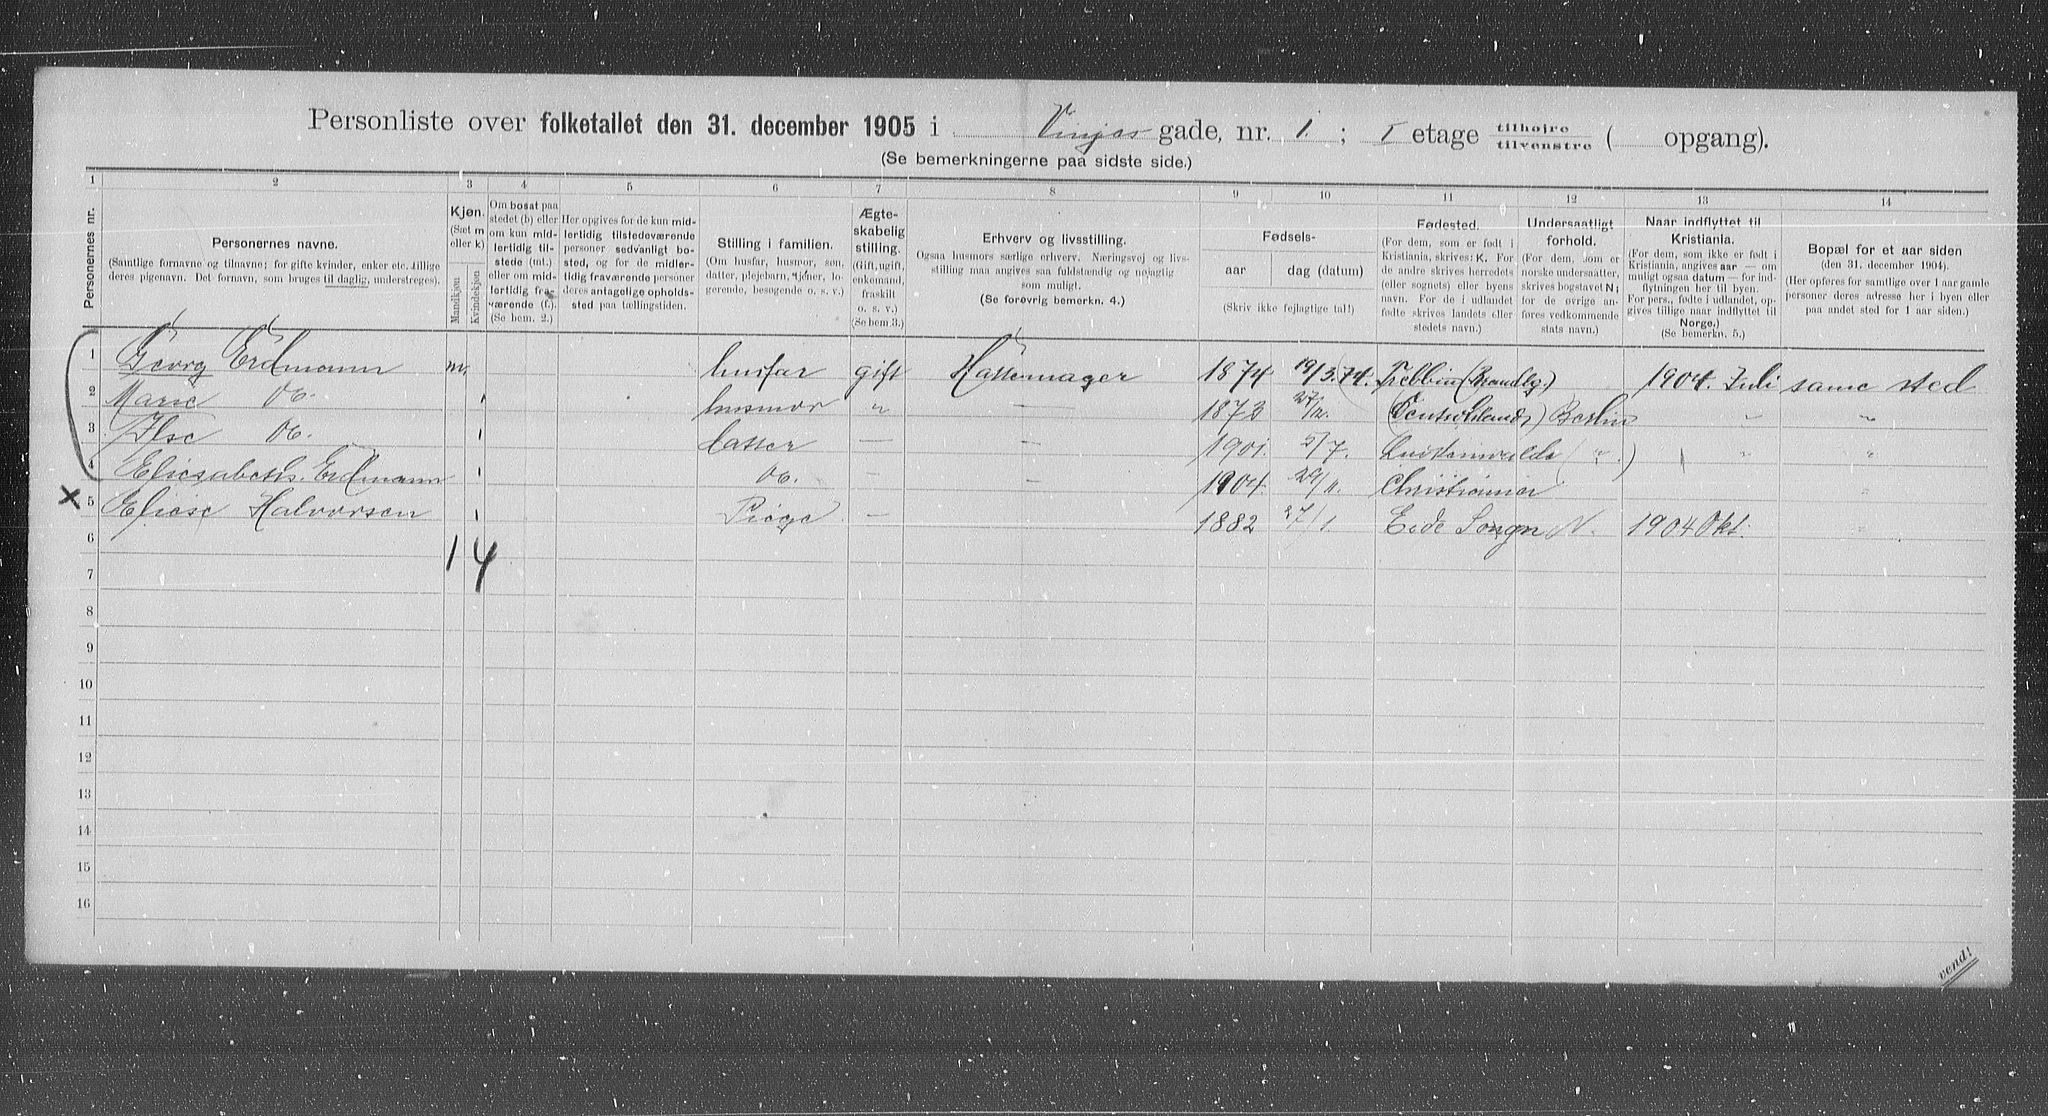 Personliste over folketallet den 31. december 1905 i Vinjes gade, nr. 1. ; I etage tilhøjre / tilvenstre ( opgang).
(Se bemerkningerne paa sidste side.)
1 2 3 4 5 6 7 8 9 10 11 12 13 14
Personernes nr.
Personernes navne.
(Samtlige fornavne og tilnavne; for gifte kvinder, enker etc. tillige
deres pigenavn. Det fornavn, som bruges til daglig, understreges).
Kjøn.
(Sæt m
eller k)
Mandkjøn
Kvindekjøn
Om bosat paa
stedet (b) eller
om kun mid-
lertidig til-
stede (mt.)
eller om mid-
lertidig fra-
værende (f.)
(Se bem. 2.)
Her opgives for de kun mid-
lertidig tilstedeværende
personer sedvanligt bo-
sted, og for de midler-
tidig fraværende personer
deres antagelige opholds-
sted paa tællingstiden.
Stilling i familien.
(Om husfar, husmor, søn,
datter, plejebarn, tjener, lo-
gerende, besøgende o. s. v.)
Ægte-
skabelig
stilling.
(Gift, ugift,
enkemand,
fraskilt
o. s. v.)
(Se bem. 3.)
Erhverv og livsstilling.
Ogsaa husmors særlige erhverv. Næringsvej og livs-
stilling maa angives saa fuldstændig og nøjagtig
som muligt.
(Se forøvrig bemerkn. 4.)
Fødsels-
aar dag (datum)
(Skriv ikke fejlagtige tal!)
Fødested.
(For dem, som er født i
Kristiania, skrives: K. For
de andre skrives herredets
(eller sognets) eller byens
navn. For de i udlandet
fødte skrives landets eller
stedets navn.)
Undersaatligt
forhold.
(For dem, som er
norske undersaatter,
skrives bogstavet N;
for de øvrige an-
føres vedkommende
stats navn.)
Naar indflyttet til
Kristiania.
(For dem, som ikke er født i
Kristiania, angives aar — om
muligt ogsaa datum — for ind-
flytningen her til byen.
For pers., fødte i udlandet, op-
gives tillige naar indflyttet til
Norge.)
(Se bemerkn. 5.)
Bopæl for et aar siden
(den 31. december 1904.)
(Her opføres for samtlige over 1 aar gamle
personer deres adresse her i byen eller
paa andet sted for 1 aar siden.)
1 Georg Erdmann m. husfar gift Hattemager 1874 19/3.74. Trebbin (Brandbg.) 1904. Juli same sted
2 Marie do. husmor " — 1873 27/12. (Deutschlands) Berlin " "
3 Ilse do. datter — — 1901. 5/7. Luckenwalde ( " ) " "
4 Eliesabeth. Erdmann do. — — 1904. 29/11. Christiania "
X 5 Eliese Halvorsen Piege — 1882 27/1. Eide Sogn N. 1904 Okt. "
6
1 4
7
8
9
10
11
12
13
14
15
16
vend!